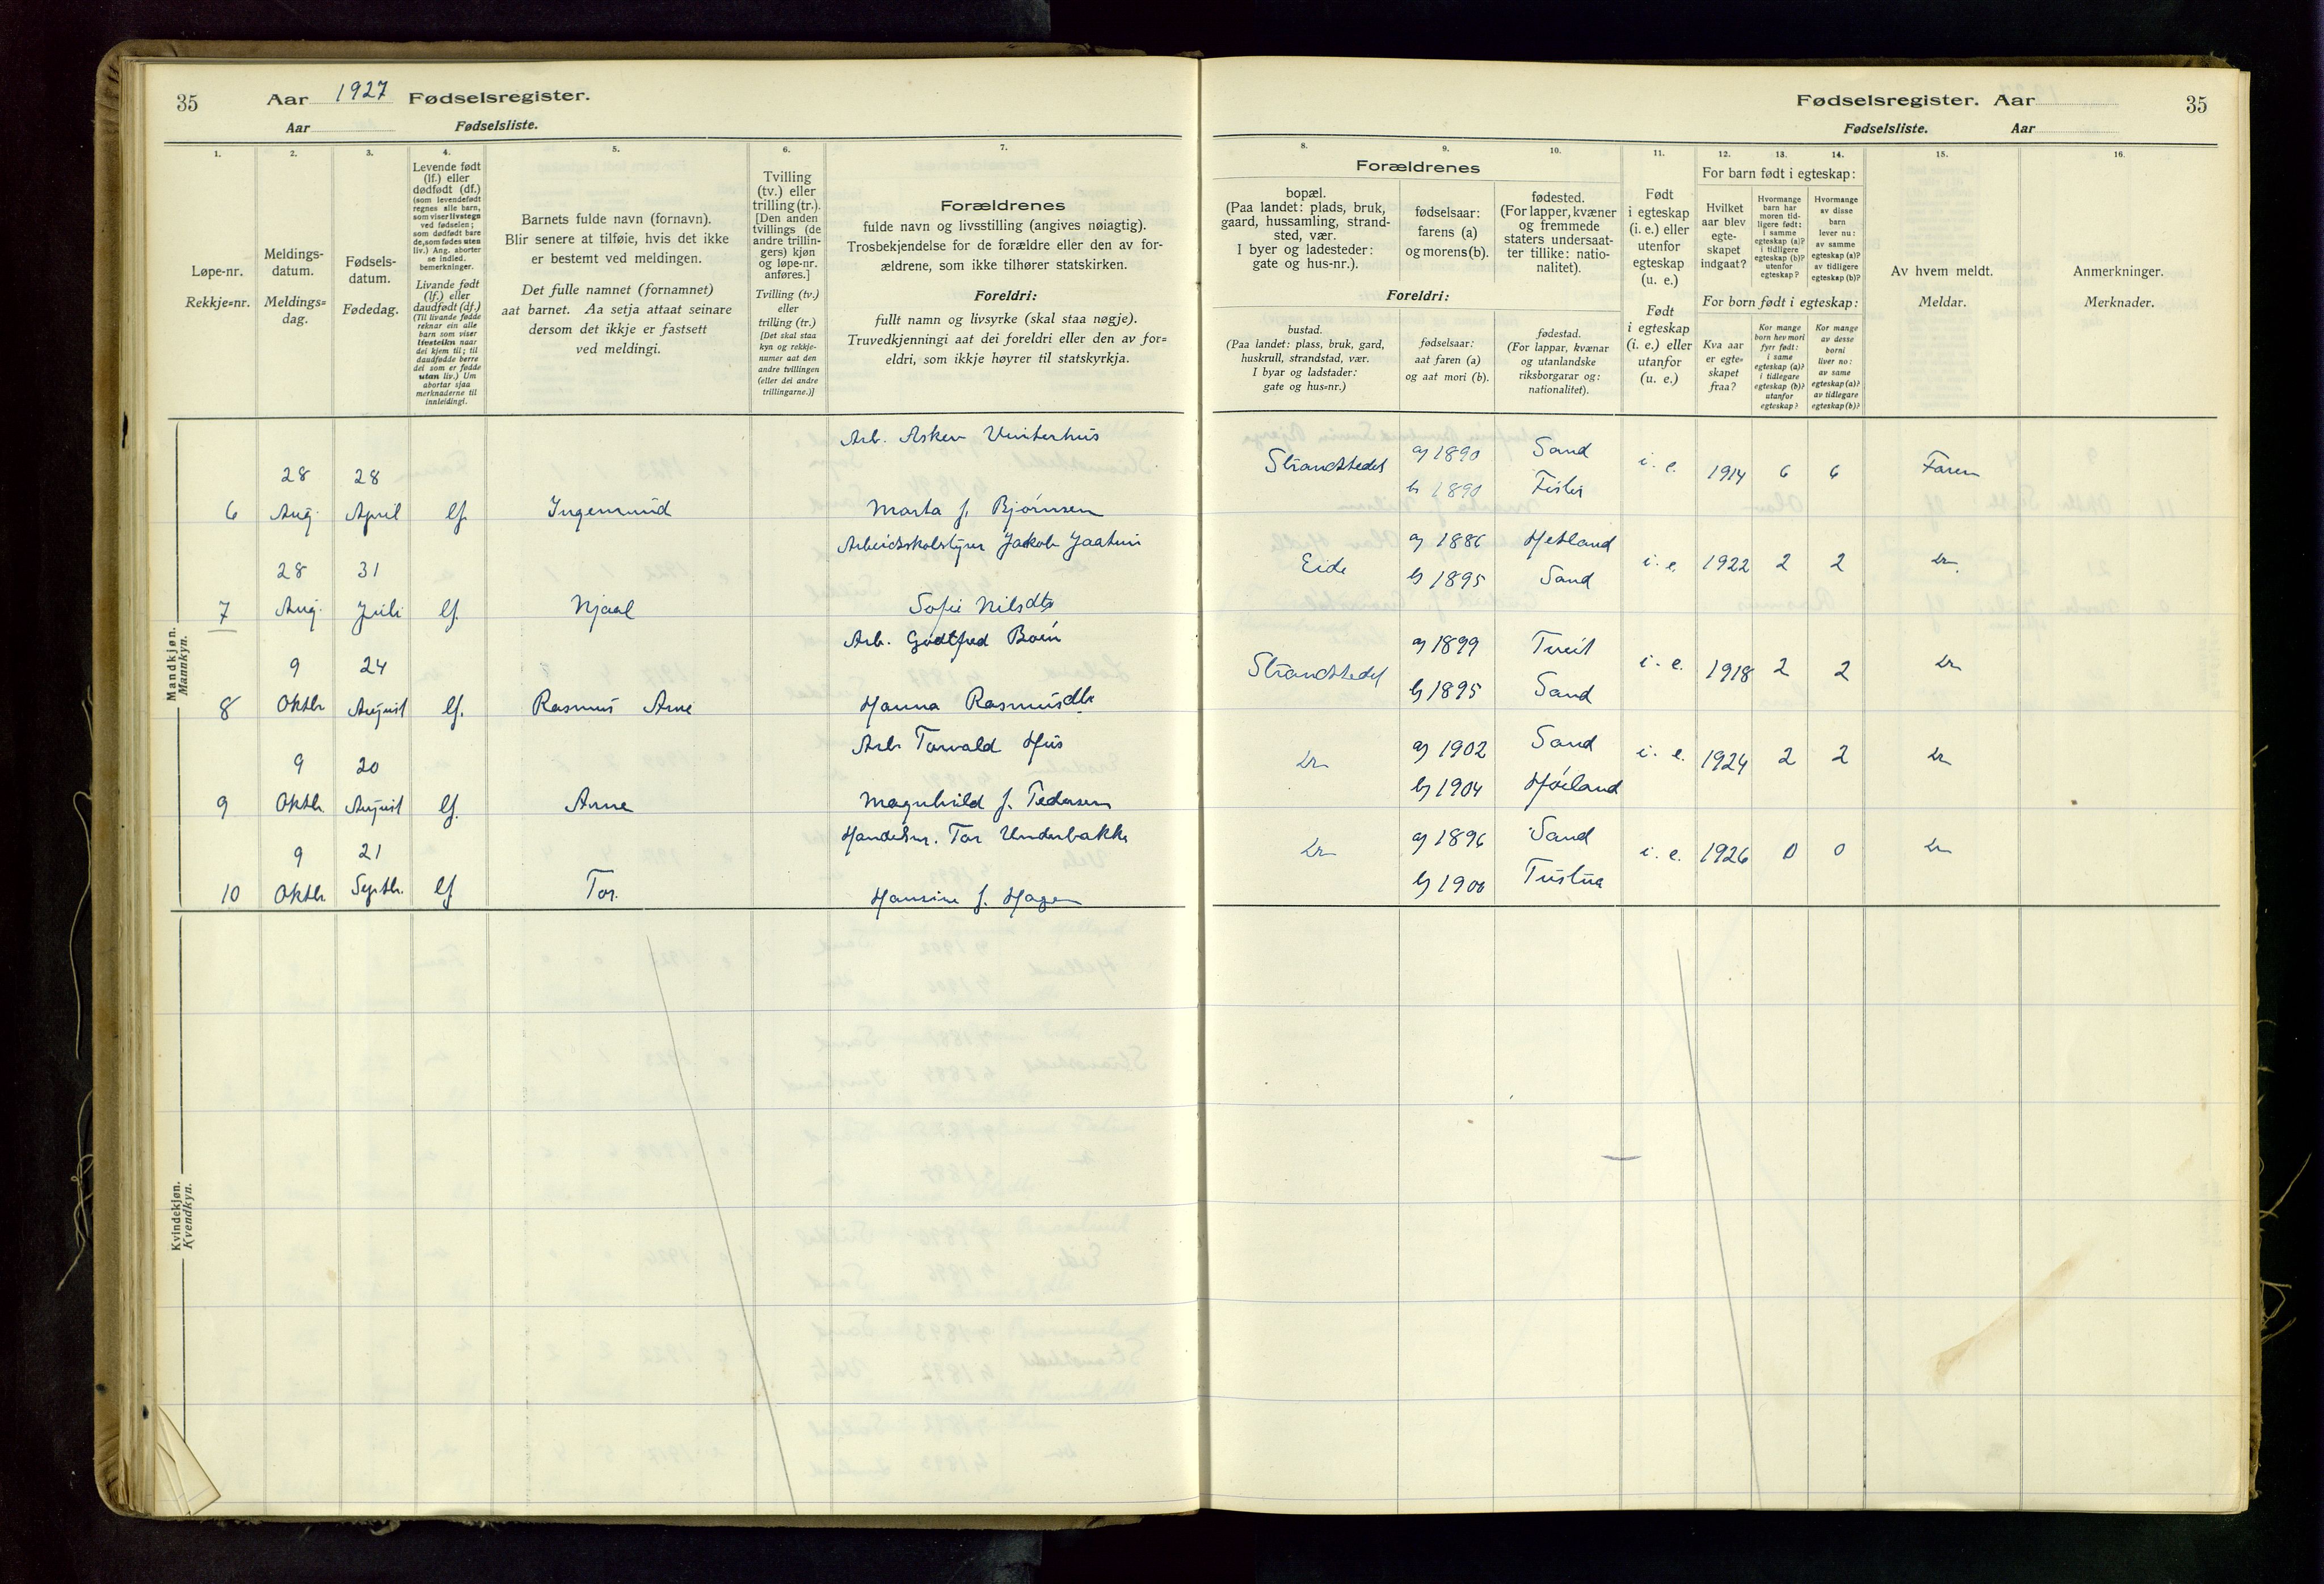 35 Aar 1927 Fødselsregister.
Aar Fødselsliste.
1. 2. 3. 4. 5. 6. 7.
Løpe-nr.
Rekkje=nr.
Meldings-
datum.
Meldings=
dag.
Fødsels-
datum.
Fødedag.
Levende født
(lf.) eller
dødfødt (df.)
(som levendefødt
regnes alle barn,
som viser livstegn
ved fødselen;
som dødfødt bare
de, som fødes uten
liv.) Ang. aborter
se indled.
bemerkninger.
Livande født
(lf.) eller
daudfødt (df.)
(Til livande fødde
reknar ein alle
barn som viser
livsteikn naar
dei kjem til; til
daudfødde berre
dei som er fødde
utan liv.) Um
abortar sjaa
merknaderne til
innleidingi.
Barnets fulde navn (fornavn).
Blir senere at tilføie, hvis det ikke
er bestemt ved meldingen.
Det fulle namnet (fornamnet)
aat barnet. Aa setja attaat seinare
dersom det ikkje er fastsett
ved meldingi.
Tvilling
(tv.) eller
trilling (tr.).
[Den anden
tvillings (de
andre trillin-
gers) kjøn
og løpe-nr.
anføres.]
Tvilling (tv.)
eller
trilling (tr.)
[Det skal staa
kyn og rekkje-
numer aat den
andre tvillingen
(eller dei andre
trillingarne.)]
Forældrenes
fulde navn og livsstilling (angives nøiagtig).
Trosbekjendelse for de forældre eller den av for-
ældrene, som ikke tilhører statskirken.
Foreldri:
fullt namn og livsyrke (skal staa nøgje).
Truvedkjenningi aat dei foreldri eller den av for=
eldri, som ikkje høyrer til statskyrkja.
Mandkjøn.
Mannkyn.
Arb. Asken Vinterhus
28 28
6 Aug. April lf. Ingemund Marta f. Bjørnsen
Arbeidsskolstyrer Jakob Jaatun
28 31
7 Aug. Juli lf. Njaal Sofie Nilsdtr
Arb. Godtfred Boen
9 24
8 Oktbr August lf. Rasmus Arne Hanna Rasmusdtr
Arb Torvald Hus
9 20
9 Oktbr August lf. Arne Magnhild f. Pedersen
Handelsm. Tor Underbakke
9 21
10 Oktbr Septbr. lf Tor. Hansine f. Hagen
Kvindekjøn.
Kvendkyn.
Fødselsregister. Aar 35
Fødselsliste. Aar
8. 9. 10. 11. 12. 13. 14. 15. 16.
Forældrenes
bopæl.
(Paa landet: plads, bruk,
gaard, hussamling, strand-
sted, vær.
I byer og ladesteder:
gate og hus-nr.).
fødselsaar:
farens (a)
og morens (b).
fødested.
(For lapper, kvæner
og fremmede
staters undersaat-
ter tillike: natio-
nalitet).
Foreldri:
bustad.
(Paa landet: plass, bruk, gard,
huskrull, strandstad, vær.
I byar og ladstader:
gate og hus=nr.)
fødselsaar:
aat faren (a)
og aat mori (b).
fødestad.
(For lappar, kvænar
og utanlandske
riksborgarar og:
nationalitet).
Født
i egteskap
(i. e.) eller
utenfor
egteskap
(u. e.)
Født
i egteskap
(i. e.) eller
utanfor
(u. e.)
For barn født i egteskap:
Hvilket
aar blev
egte-
skapet
indgaat?
Hvormange
barn har
moren tid-
ligere født:
i samme
egteskap (a)?
i tidligere
egteskap (b)?
utenfor
egteskap?
Hvormange
av disse
barn
lever nu:
av samme
egteskap (a)?
av tidligere
egteskap (b)?
For born født i egteskap:
Kva aar
er egte=
skapet
fraa?
Kor mange
born hev mori
fyrr født:
i same
egteskap (a)?
i tidlegare
egteskap (b)?
utanfor
egteskap?
Kor mange
av desse
borni
liver no:
av same
egteskap (a)?
av tidlegare
egteskap (b)?
Av hvem meldt.
Meldar.
Anmerkninger.
Merknader.
Strandstedet a) 1890 Sand i. e. 1914 6 6 Faren
b 1890 Fister
Eide a) 1886 Hetland i. e. 1922 2 2 Do
b) 1895 Sand
Strandstedet a) 1899 Tveit i. e. 1918 2 2 Do
b) 1895 Sand
Do a) 1902 Sand i. e. 1924 2 2 Do
b) 1904 Høiland
Do a) 1896 Sand i. e. 1926 0 0 Do
b) 1900 Tustna